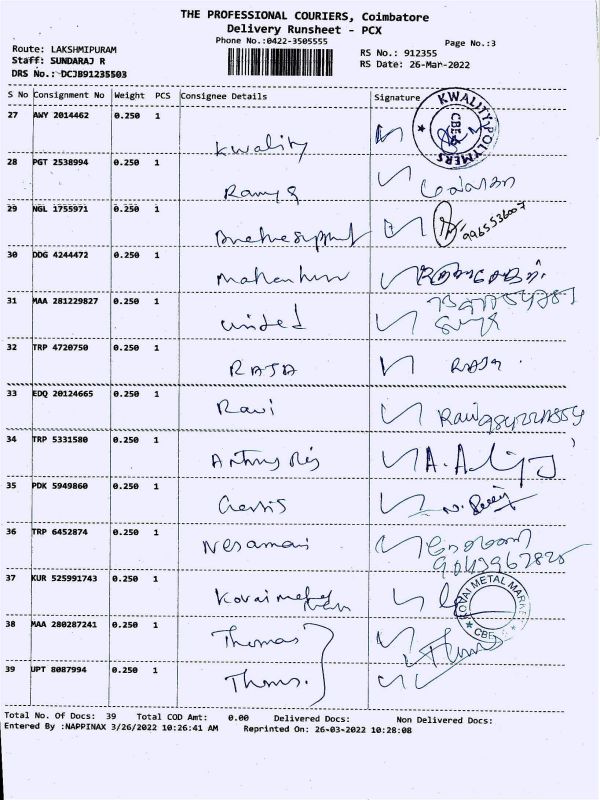 THE PROFESSIONAL COURIERS, Coimbatore
Delivery Runsheet - PCX
Phone No.:0422-3505555
Page No.:3
Route: LAKSHMIPURAM
Staff: SUNDARAJ R
DRS No.: DCJB91235503
RS No.: 912355
RS Date: 26-Mar-2022
S No Consignment No Weight PCS Consignee Details Signature
27 AWY 2014462 0.250 1 Kwality KWALITY POLYMERS CBE
28 PGT 2538994 0.250 1
29 NGL 1755971 0.250 1 9965536007
30 DDG 4244472 0.250 1
31 MAA 281229827 0.250 1 United
32 TRP 4720750 0.250 1 RAJA RAJA
33 EDQ 20124665 0.250 1 Ravi Ravi
34 TRP 5331580 0.250 1
35 PDK 5949860 0.250 1
36 TRP 6452874 0.250 1 Nesamani
37 KUR 525991743 0.250 1 Kovai metal KOVAI METAL MARKE CBE
38 MAA 280287241 0.250 1 Thomas
39 UPT 8087994 0.250 1 Thoms.
Total No. Of Docs: 39 Total COD Amt: 0.00 Delivered Docs: Non Delivered Docs:
Entered By :NAPPINAX 3/26/2022 10:26:41 AM Reprinted On: 26-03-2022 10:28:08